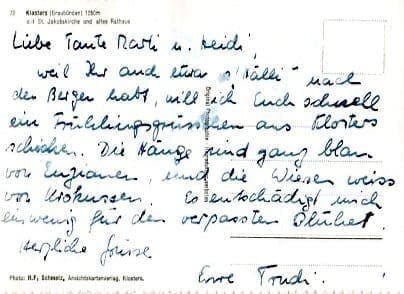 73 Klosters (Graubünden) 1250m
mit St. Jakobskirche und altes Rathaus
Liebe Tante Marti u. Heidi,
weil Ihr auch etwa s'"Fälli" nach
den Bergen habt, will ich Euch schnell
ein Frühlingsgrüsschen aus Klosters
schicken. Die Hänge sind ganz blau
von Enzianen, und die Wiesen weiss
von Krokussen. Es entschädigt mich
ein wenig für den verpassten Blühet.
Herzliche Grüsse
Eure Trudi.
Photo: H.F. Schmelz, Ansichtskartenverlag, Klosters.
Original Photographie